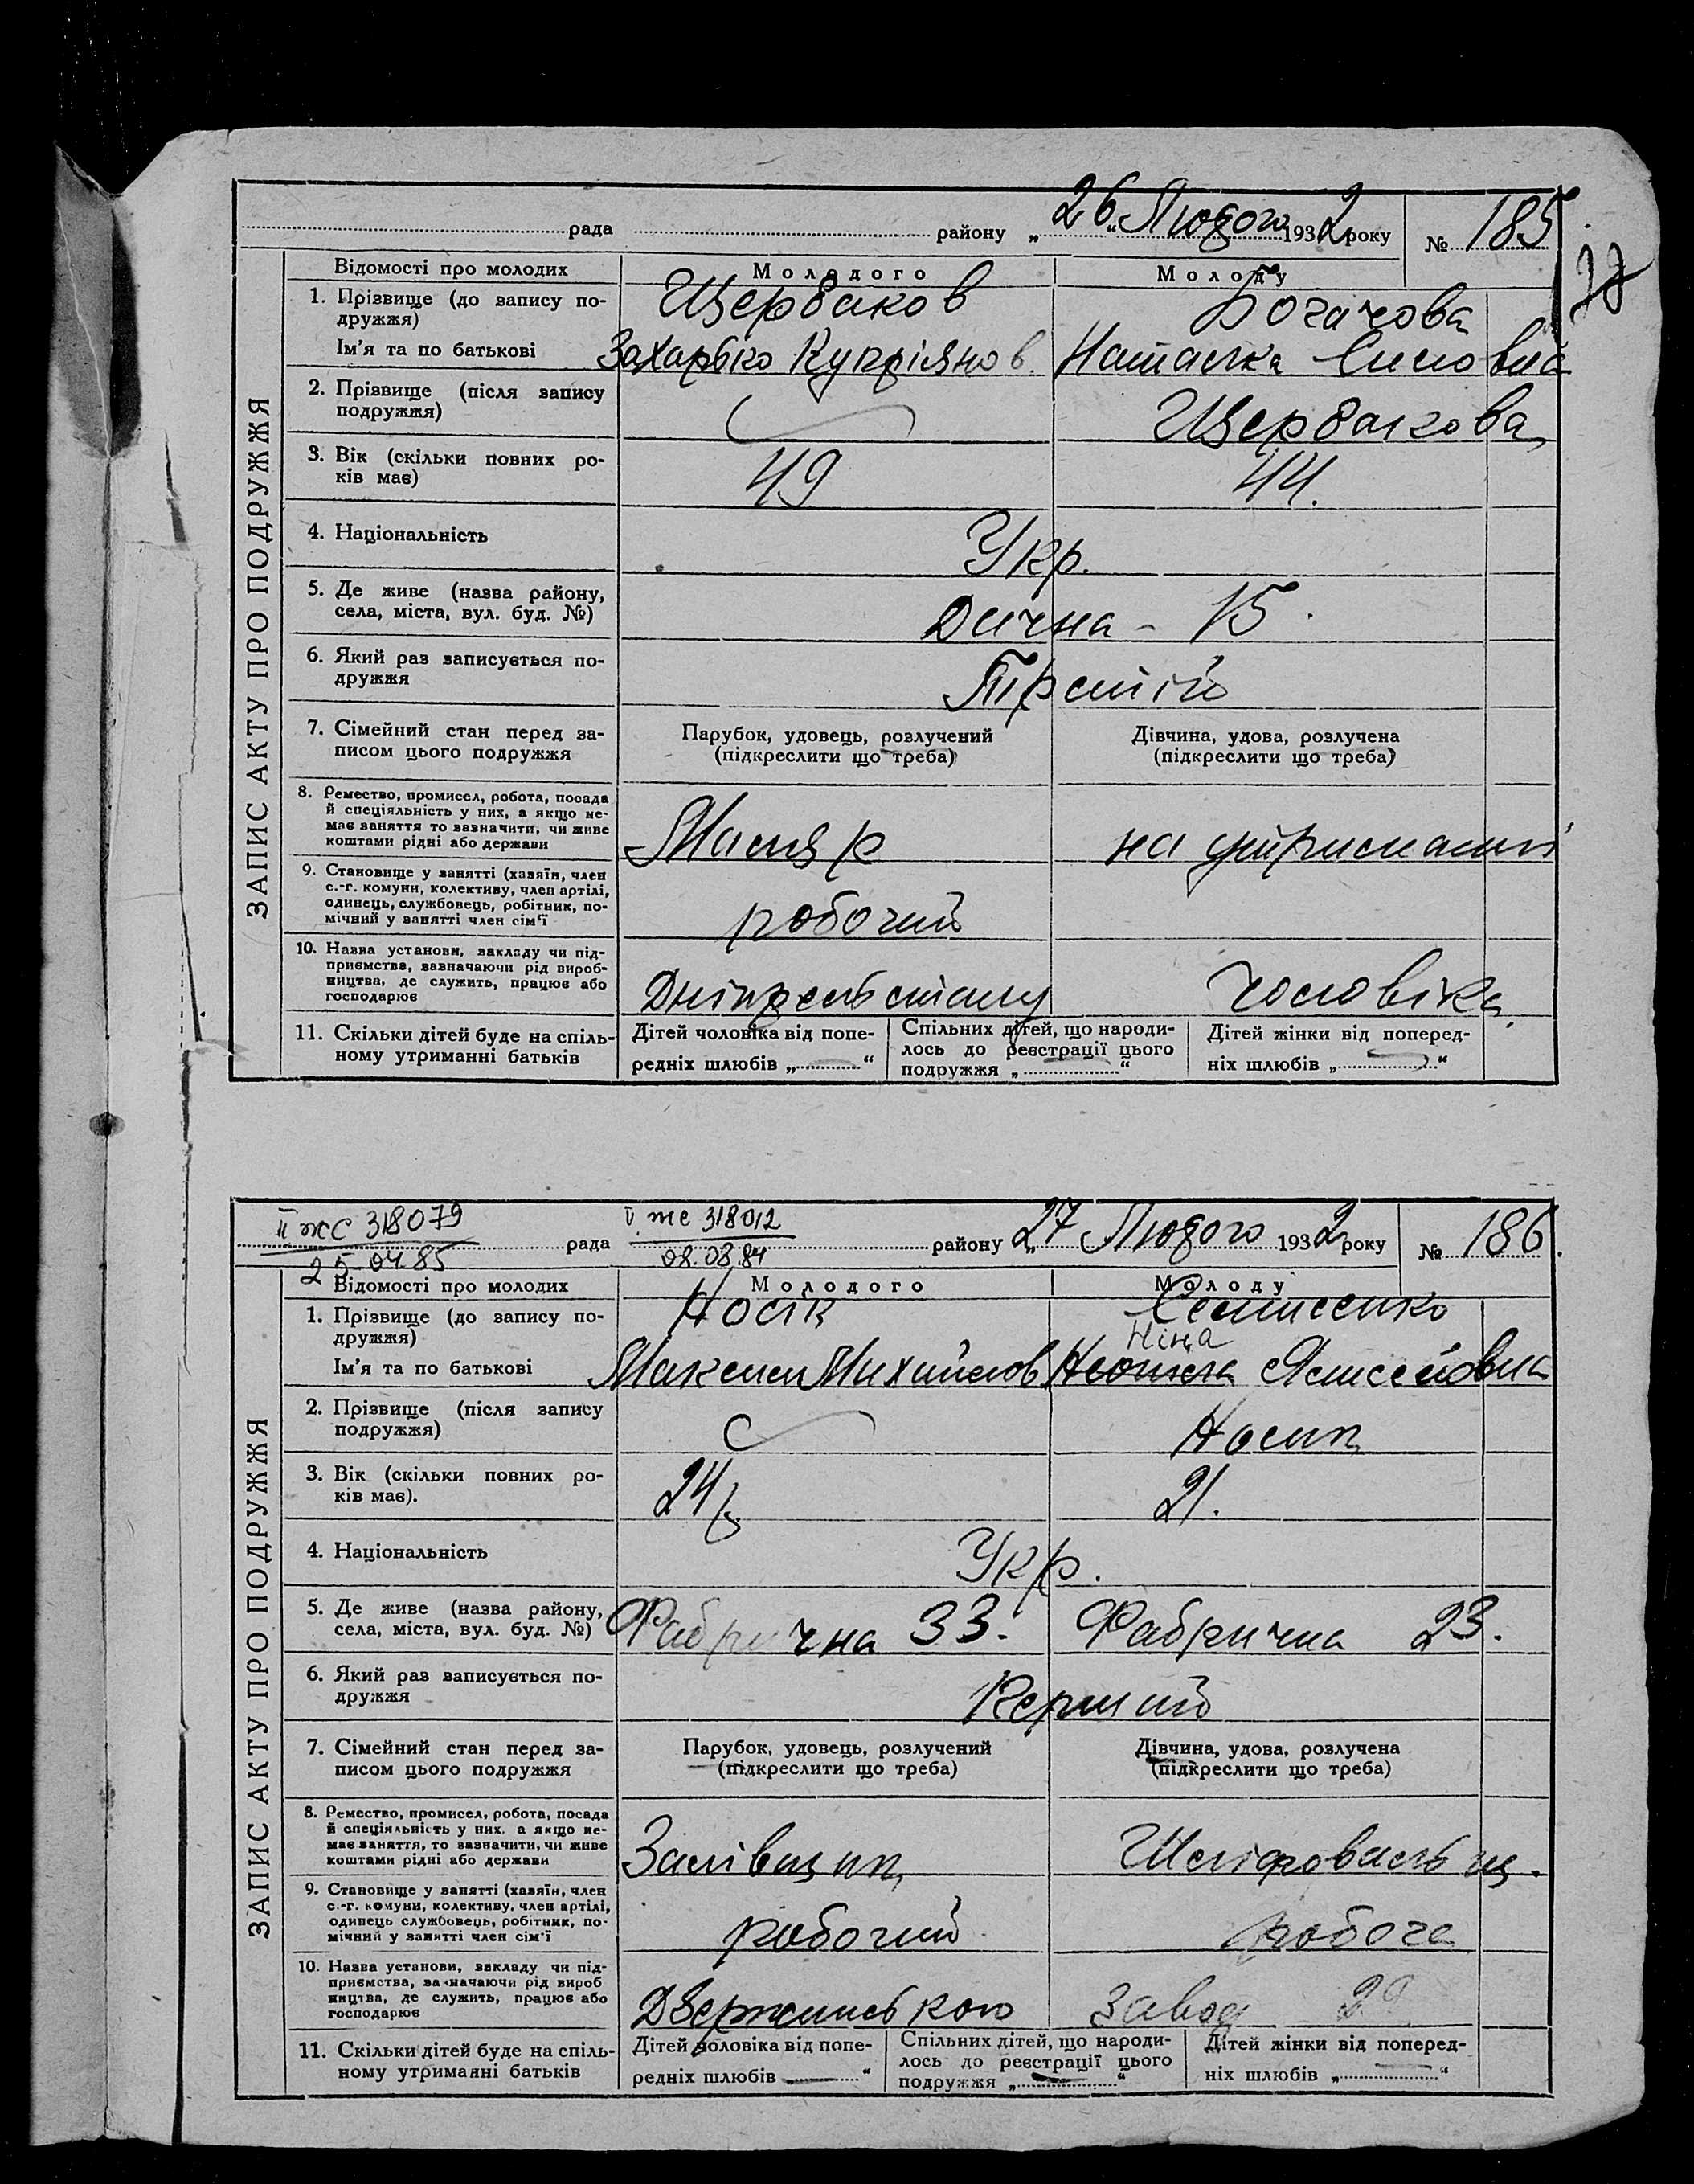 рада району „26“ Лютого 1932 року № 185
ЗАПИС АКТУ ПРО ПОДРУЖЖЯ
Відомості про молодих Молодого Молоду
1. Прізвище (до запису по-
дружжя) Щербаков Богачова
Ім'я та по батькові Захарько Купріянов. Наталка
2. Прізвище (після запису
подружжя) Щербакова
3. Вік (скільки повних ро-
ків має) 49 44.
4. Національність Укр.
5. Де живе (назва району,
села, міста, вул. буд. №) Дачна - 15.
6. Який раз записується по-
дружжя Третій
7. Сімейний стан перед за-
писом цього подружжя
Парубок, удовець, розлучений
(підкреслити що треба)
Дівчина, удова, розлучена
(підкреслити що треба)
8. Ремество, промисел, робота, посада
й спеціяльність у них, а якщо не-
має заняття то зазначити, чи живе
коштами рідні або держави
Маляр на утриманні
9. Становище у занятті (хазяїн, член
с.-г. комуни, колективу, член артілі,
одинець, службовець, робітник, по-
мічний у занятті член сім'ї
робочий
10. Назва установи, закладу чи під-
приємства, зазначаючи рід вироб-
ництва, де служить, працює або
господарює
чоловіка
11. Скільки дітей буде на спіль-
ному утриманні батьків
Дітей чоловіка від попе-
редніх шлюбів „ “
Спільних дітей, що народи-
лось до реєстрації цього
подружжя „ “
Дітей жінки від поперед-
ніх шлюбів „ “
II жс 318079
25 04.85
V жс 318012
08.08.84
рада району „27 Лютого 1932 року № 186.
ЗАПИС АКТУ ПРО ПОДРУЖЖЯ
Відомості про молодих Молодого Молоду
1. Прізвище (до запису по-
дружжя) Носік
Ніна
Ім'я та по батькові Максим Михайлов
2. Прізвище (після запису
подружжя) Носик
3. Вік (скільки повних ро-
ків має). 24 21.
4. Національність Укр.
5. Де живе (назва району,
села, міста, вул. буд. №) Фабрична 33. Фабрична 23.
6. Який раз записується по-
дружжя Перший
7. Сімейний стан перед за-
писом цього подружжя
Парубок, удовець, розлучений
(підкреслити що треба)
Дівчина, удова, розлучена
(підкреслити що треба)
8. Ремество, промисел, робота, посада
й спеціяльність у них, а якщо не-
має заняття, то зазначити, чи живе
коштами рідні або держави
Залівщик Шліфовальщ.
9. Становище у занятті (хазяїн, член
с.-г. комуни, колективу, член артілі,
одинець службовець, робітник, по-
мічний у занятті член сім'ї
робочий робоча
10. Назва установи, закладу чи під-
приємства, зазначаючи рід вироб
ництва, де служить, працює або
господарює
Дзержинського Завод 29
11. Скільки дітей буде на спіль-
ному утриманні батьків
Дітей чоловіка від попе-
редніх шлюбів “
Спільних дітей, що народи-
лось до реєстрації цього
подружжя „ “
Дітей жінки від поперед-
ніх шлюбів „ “